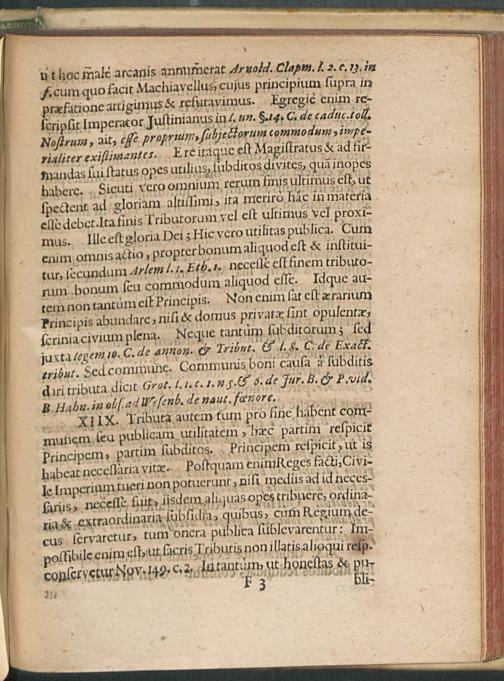 ut hoc malè arcanis annumerat Arnold. Clapm. l. 2. c. 13. in
f. cum quo facit Machiavellus, cujus principium supra in
præfatione attigimus & refutavimus. Egregiè enim re-
scripsit Imperator Justinianus in l. un. §. 14. C. de caduc. toll.
Nostrum, ait, esse proprium, subjectorum commodum, impe-
rialiter existimantes. E re itaque est Magistratus & ad fir-
mandas sui status opes utilius, subditos divites, quā inopes
habere. Sicuti vero omnium rerum finis ultimus est, ut
spectent ad gloriam altissimi, ita merito hâc in materia
esse debet. Ita finis Tributorum vel est ultimus vel proxi-
mus. Ille est gloria Dei; Hic vero utilitas publica. Cum
enim omnis actio, propter bonum aliquod est & institui-
tur, secundum Arlem l. 1. Eth. 1. necesse est finem tributo-
rum bonum seu commodum aliquod esse. Idque au-
tem non tantùm est Principis. Non enim sat est ærarium
Principis abundare, nisi & domus privatæ sint opulentæ,
scrinia civium plena. Neque tantùm subditorum; sed
juxta legem 10. C. de annon. & Tribut. & l. 8. C. de Exact.
tribut. Sed commune. Communis boni causâ à subditis
dari tributa dicit Grot. l. 1. c. 1. n 5. & 6. de Jur. B. & P. vid.
B. Hahn. in obs. ad Wesenb. de naut. fœnore.
XIIX. Tributa autem tum pro fine habent com-
munem seu publicam utilitatem, hæc partim respicit
Principem, partim subditos. Principem respicit, ut is
habeat necessaria vitæ. Postquam enim Reges facti, Civi-
le Imperium tueri non potuerunt, nisi mediis ad id neces-
sariis, necesse fuit, iisdem aliquas opes tribuere, ordina-
ria & extraordinaria subsidia, quibus, cùm Regium de-
cus servaretur, tum onera publica sublevarentur: Im-
possibile enim est, ut sacris Tributis non illatis alioqui resp.
conservetur Nov. 149. c. 2. In tantùm, ut honestas & pu-
F 3 bli-